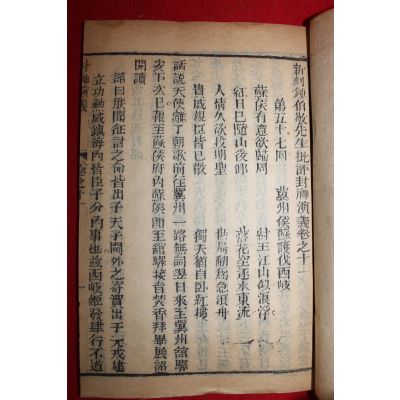 新刻鍾伯敬先生批評封神演義卷之十一
第五十七回　冀州侯蘇護伐西岐
蘇侯有意欲歸周　紂王江山似浪浮
紅日已隨山後卸　落花空逐水東流
人情久欲投明聖　世局翻爲急浪舟
貴戚親臣皆已散　獨夫猶自卧紅樓
話説天使離了朝歌前往冀州一路無詞翌日來至冀州館驛
次日報至蘇侯府内蘇侯即至館驛接旨焚香拜畢展詔
開讀
詔曰朕聞征討之命皆出于天子閫外之寄實出于元戎建
立功勳威鎮海内皆臣子分内事也兹西岐姬發肆行不道
封神演義
卷之十一
一